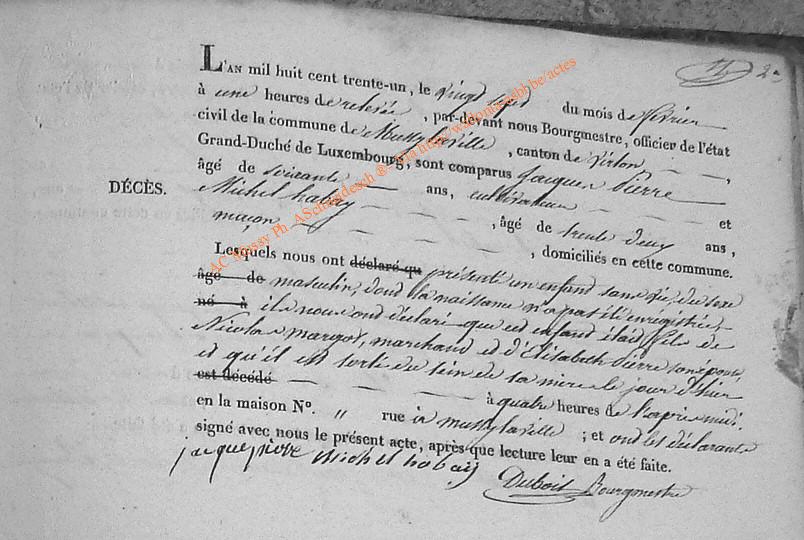 2
L'AN mil huit cent trente-un, le vingt sept du mois de février
à une heures de relevée, par-devant nous Bourgmestre, officier de l'état
civil de la commune de Mussylaville, canton de virton — — ,
Grand-Duché de Luxembourg, sont comparus Jacques Pierre
âgé de soixante — ans, cultivateur — — et
DÉCÈS.
Michel habay — — — , âgé de trente deux ans,
maçon — — — — , domiciliés en cette commune.
Lesquels nous ont déclaré qu présenté un enfant sans vie, du sexe
âgé de masculin, dont la naissance n'a pas été enregistrée,
né à ils nous ont déclaré que cet enfant était fils de
Nicolas margot, marchand et d'Elisabeth Pierre son épouse
et qu'il est sorti du sein de sa mère le jour d'hier
est décédé — — — — à quatre heures de l'après midi
en la maison N°. " rue à mussylaville ; et ont les déclarants
signé avec nous le présent acte, après que lecture leur en a été faite.
jacque pierre michel habay
Dubois Bourgmestre
AC Mussy Ph. ASchandesch ® via http://wallonia.asbl.be/actes